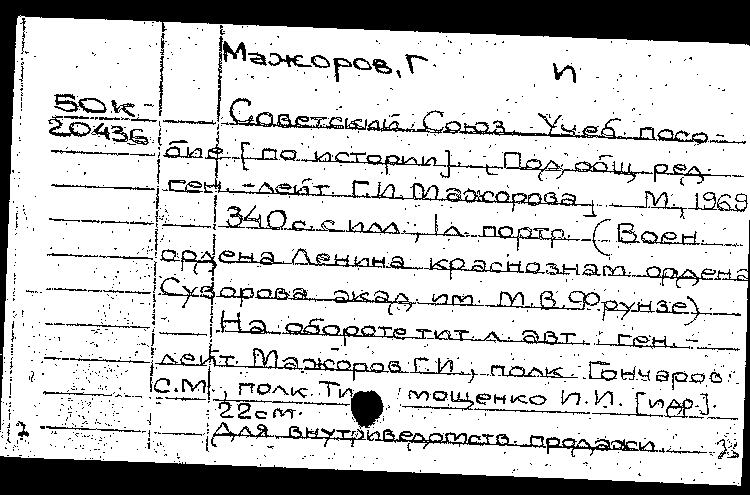 Мажоров, Г. п
50к-
20436
Советский Союз. Учеб. посо-
бие [по истории]. [Под общ. ред.
ген.-лейт. Г.И. Мажорова] М., 1969
340 с. с илл., 1 л. портр. (Воен.
ордена Ленина краснознам. ордена
Суворова акад. им. М.В.Фрунзе)
На обороте тит. л. авт.: ген.-
лейт. Мажоров Г.И., полк. Гончаров
С.М., полк. Тимощенко И.И. [и др.].
22 см.
Для внутриведомств. продажи.